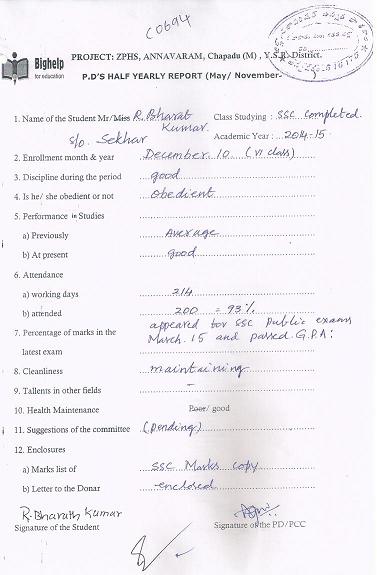 C0694
Bighelp
for education
PROJECT: ZPHS, ANNAVARAM, Chapadu (M), Y.S.R. District.
P.D'S HALF YEARLY REPORT (May/ November-
1. Name of the Student Mr/Miss R. Bharat Kumar Class Studying : SSC completed.
S/o. Sekhar Academic Year : 2014-15
2. Enrollment month & year December 10 (VI class)
3. Discipline during the period good
4. Is he/ she obedient or not Obedient
5. Performance in Studies
a) Previously Average
b) At present good
6. Attendance
a) working days 214
b) attended 200 = 93%
7. Percentage of marks in the appeared for SSC Public exams
latest exam March. 15 and passed. G.P.A:
8. Cleanliness maintaining
9. Tallents in other fields -
10. Health Maintenance Poor/ good
11. Suggestions of the committee (pending)
12. Enclosures
a) Marks list of SSC Marks copy
b) Letter to the Donar enclosed
R. Bharath Kumar
Signature of the Student Signature of the PD/PCC